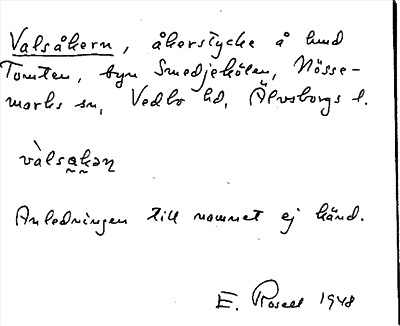 Valsåkern, åkerstycke å hmd
Tomten, byn Smedjekölen, Nösse-
marks sn, Vedbo hd, Älvsborgs l.
vàlsakəṇ
Anledningen till namnet ej känd.
E. Rosell 1948